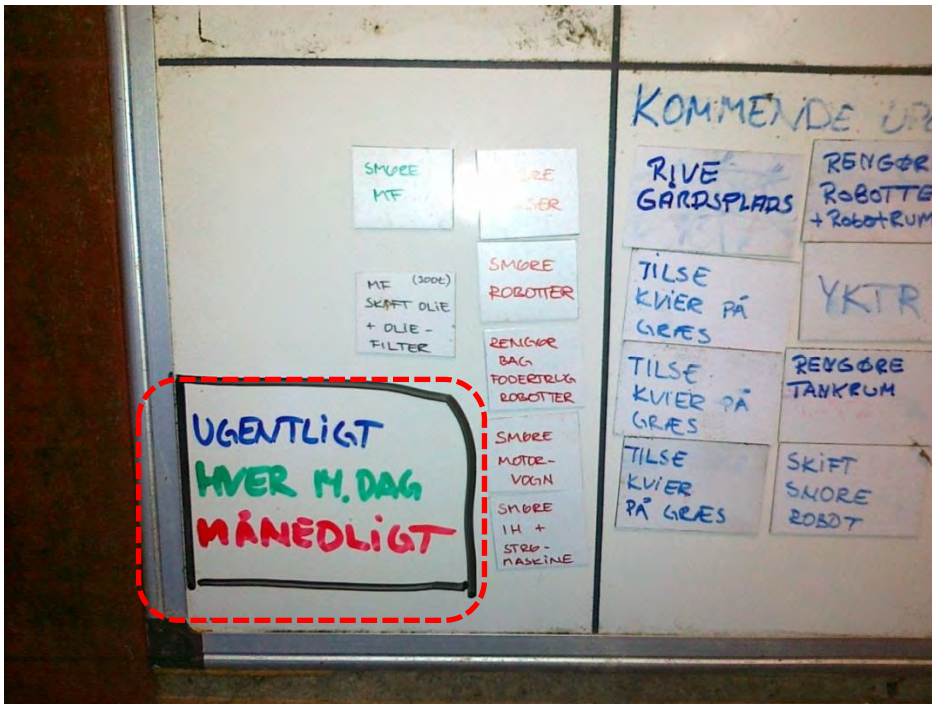 SMØRE
MF
MF (300t)
SKIFT OLIE
+ OLIE-
FILTER
SMØRE
ROBOTTER
RENGØR
BAG
FODERTRUG
ROBOTTER
SMØRE
MOTOR-
VOGN
SMØRE
IH +
STRØ-
MASKINE
UGENTLIGT
HVER 14. DAG
MÅNEDLIGT
KOMMENDE
RIVE
GÅRDSPLADS
TILSE
KVIER PÅ
GRÆS
TILSE
KVIER PÅ
GRÆS
TILSE
KVIER
PÅ GRÆS
RENGØR
ROBOTTE
+ ROBOTRUM
YKTR
RENGØRE
TANKRUM
SKIFT
SMØRE
ROBOT